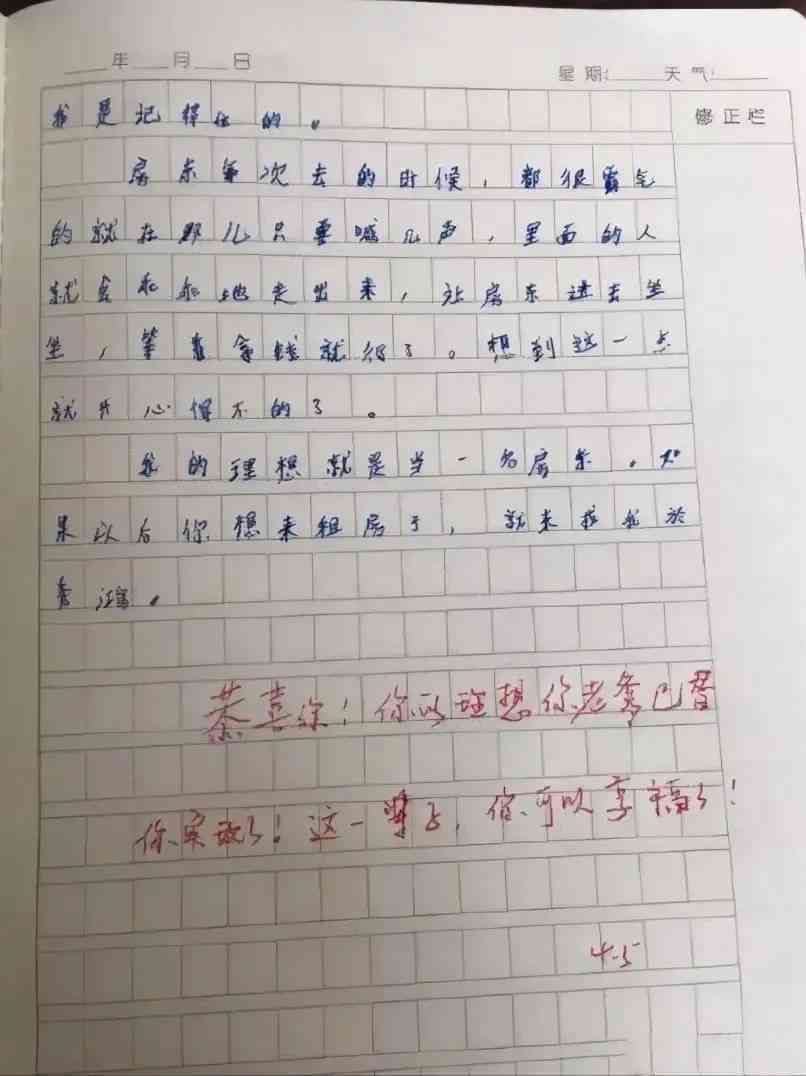 年 月 日
星期: 天气:
修正栏
我是记得住的。
房东每次去的时候，都很霸气
的就在那儿只要喊几声，里面的人
就会乖乖地走出来，让房东进去坐
坐，等着拿钱就行了。想到这一点
就开心得不的了。
我的理想就是当一名房东。如
果以后你想来租房子，就来找我於
秀鸿。
恭喜你！你的理想你老爹已替
你实现了！这一辈子，你可以享福了！
4.5